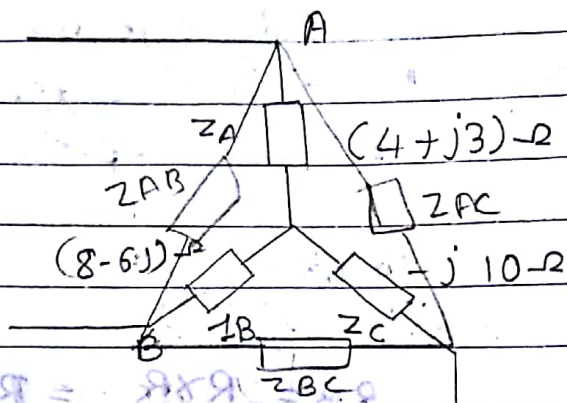 A
ZA (4+j3)Ω
ZAB ZAC
(8-6j)Ω -j10Ω
B 1B ZC
ZBC